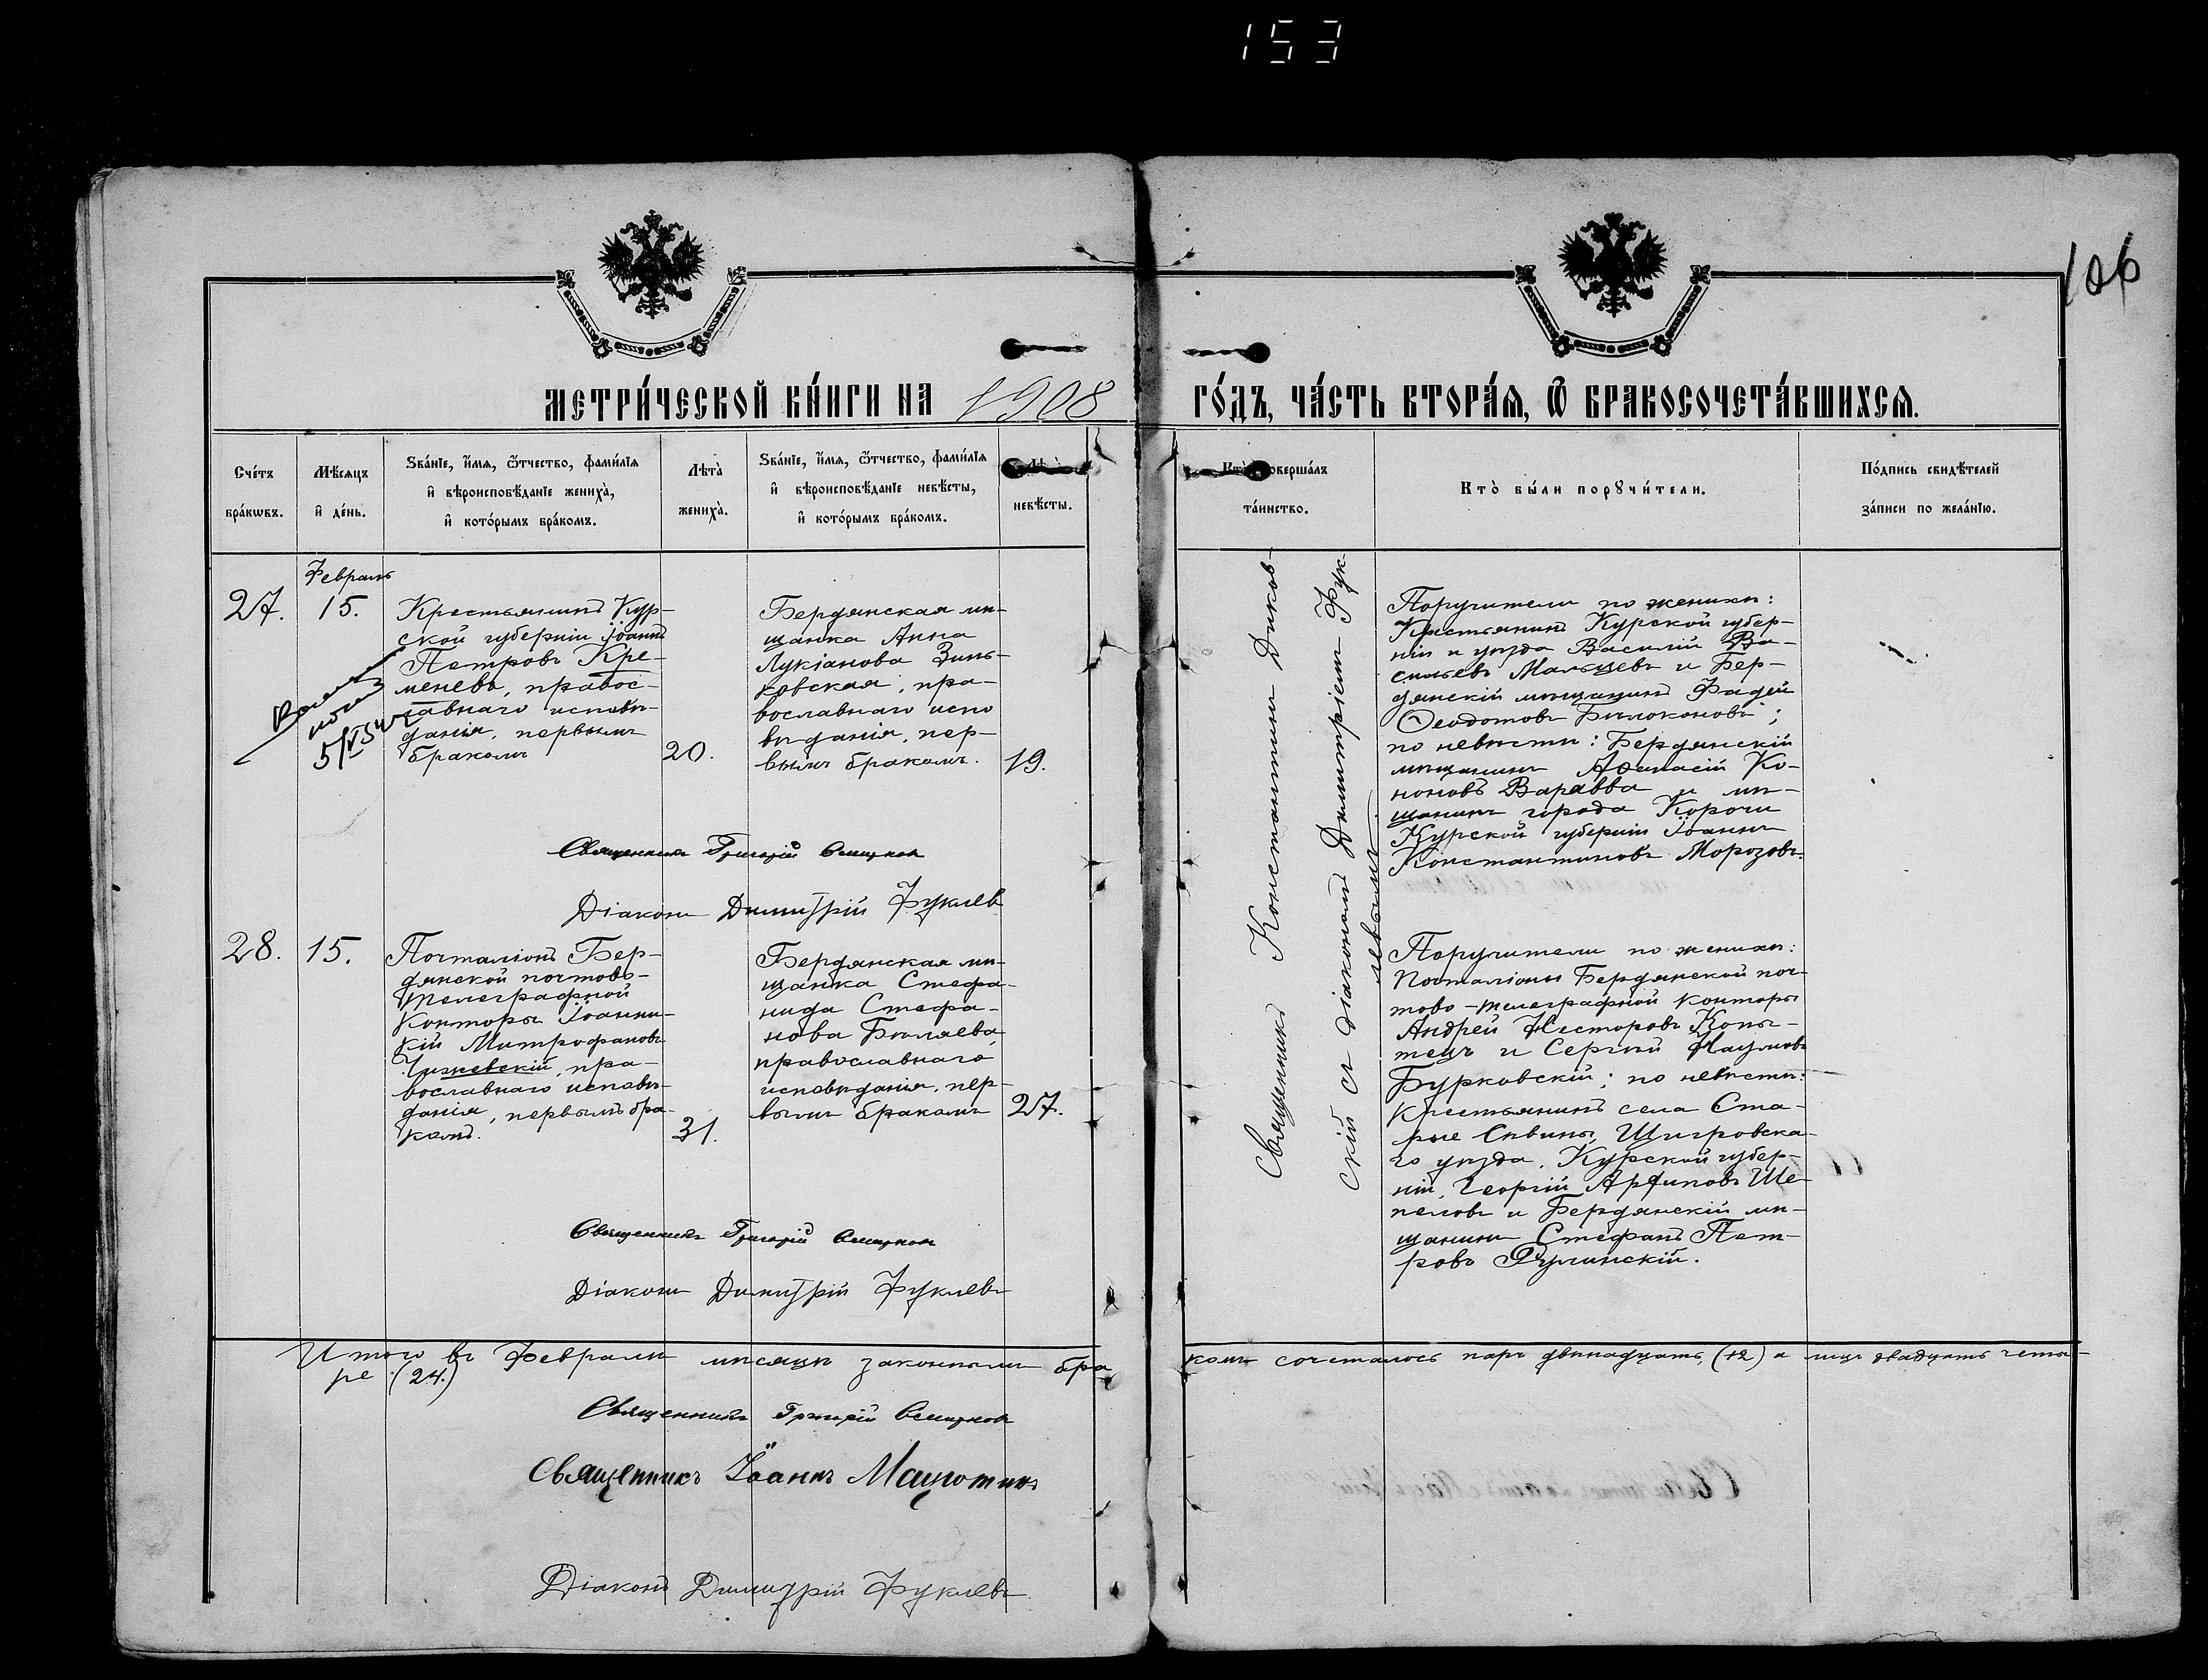 153
106
МЕТРИ́ЧЕСКОЙ КНИ́ГИ НА 1908 ГО́ДЪ, ЧА́СТЬ ВТОРА́Ѧ, Ѿ БРАКОСОЧЕТА́ВШИХСѦ.
Сче́тъ бра́кѡвъ.
Мѣ́сяцъ и҆ де́нь.
Ѕва́нїе, и҆́мѧ, ѻ҆́тчество, фами́лїѧ
и҆ вѣроисповѣ́данїе жениха̀,
и҆ кото́рымъ бра́комъ.
Лѣта̀ жениха̀.
Ѕва́нїе, и҆́мѧ, ѻ҆́тчество, фами́лїѧ
и҆ вѣроисповѣ́данїе невѣ́сты,
и҆ кото́рымъ бра́комъ.
невѣ́сты.
Кто̀ соверша́лъ
та́инство.
Кто̀ бы́ли порꙋчи́тели.
По́дпись свидѣ́телей
за́писи по жела́нїю.
27.
Февраль
15.
Крестьянинъ Кур-
ской губерніи Іоаннъ
Петровъ Кре-
меневъ, правос-
лавнаго исповѣ-
данія, первымъ
бракомъ
20.
Бердянская мѣ-
щанка Анна
Лукіанова Зинь-
ковская, пра-
вославнаго испо
вѣданія, пер-
вымъ бракомъ.
19.
Священникъ Константинъ Диков-
скій съ діакономъ Димитріемъ Фук-
левымъ
Поручители по женихѣ:
Крестьянинъ Курской губер-
ніи и уѣзда Василій Ва-
сильевъ Мальцевъ и Бер-
дянскій мѣщанинъ Фадей
Ѳеодотовъ Бѣлоконовъ;
по невѣстѣ: Бердянскій
мѣщанинъ Аѳанасій Ко-
новъ Варавва и мѣ-
щанинъ города Корочи
Курской губерніи Іоаннъ
Константиновъ Морозовъ.
Священникъ Григорій
Діаконъ Димитрій Фуклевъ
28.
15.
Почталіонъ Бер-
дянской почтово-
телеграфной
конторы Іоанни-
кій Митрофановъ
Чижевскій, пра-
вославнаго исповѣ-
данія, первымъ бра-
комъ.
31.
Бердянская мѣ-
щанка Стефа-
нида Стефа-
нова Бѣляева,
православнаго
исповѣданія, пер-
вымъ бракомъ
27.
Поручители по женихѣ:
Почталіоны Бердянской поч-
тово-телеграфной конторы
Андрей Несторовъ Копы-
тецъ и Сергѣй Наумовъ
Бурковскій; по невѣстѣ:
крестьянинъ села Ста-
рые Савины, Щигровска-
го уѣзда, Курской губер-
ніи, Георгій Архиповъ Ше-
пелевъ и Бердянскій мѣ-
щанинъ Стефанъ Пет-
ровъ Рулинскій.
Священникъ Григорій
Діаконъ Димитрій Фуклевъ
Итого въ Февралѣ мѣсяцѣ законнымъ бра
комъ сочеталось паръ двѣнадцать, (12) а лицъ двадцать четы-
ре (24.)
Священникъ Григорій
Священникъ Іоаннъ
Діаконъ Димитрій Фуклевъ